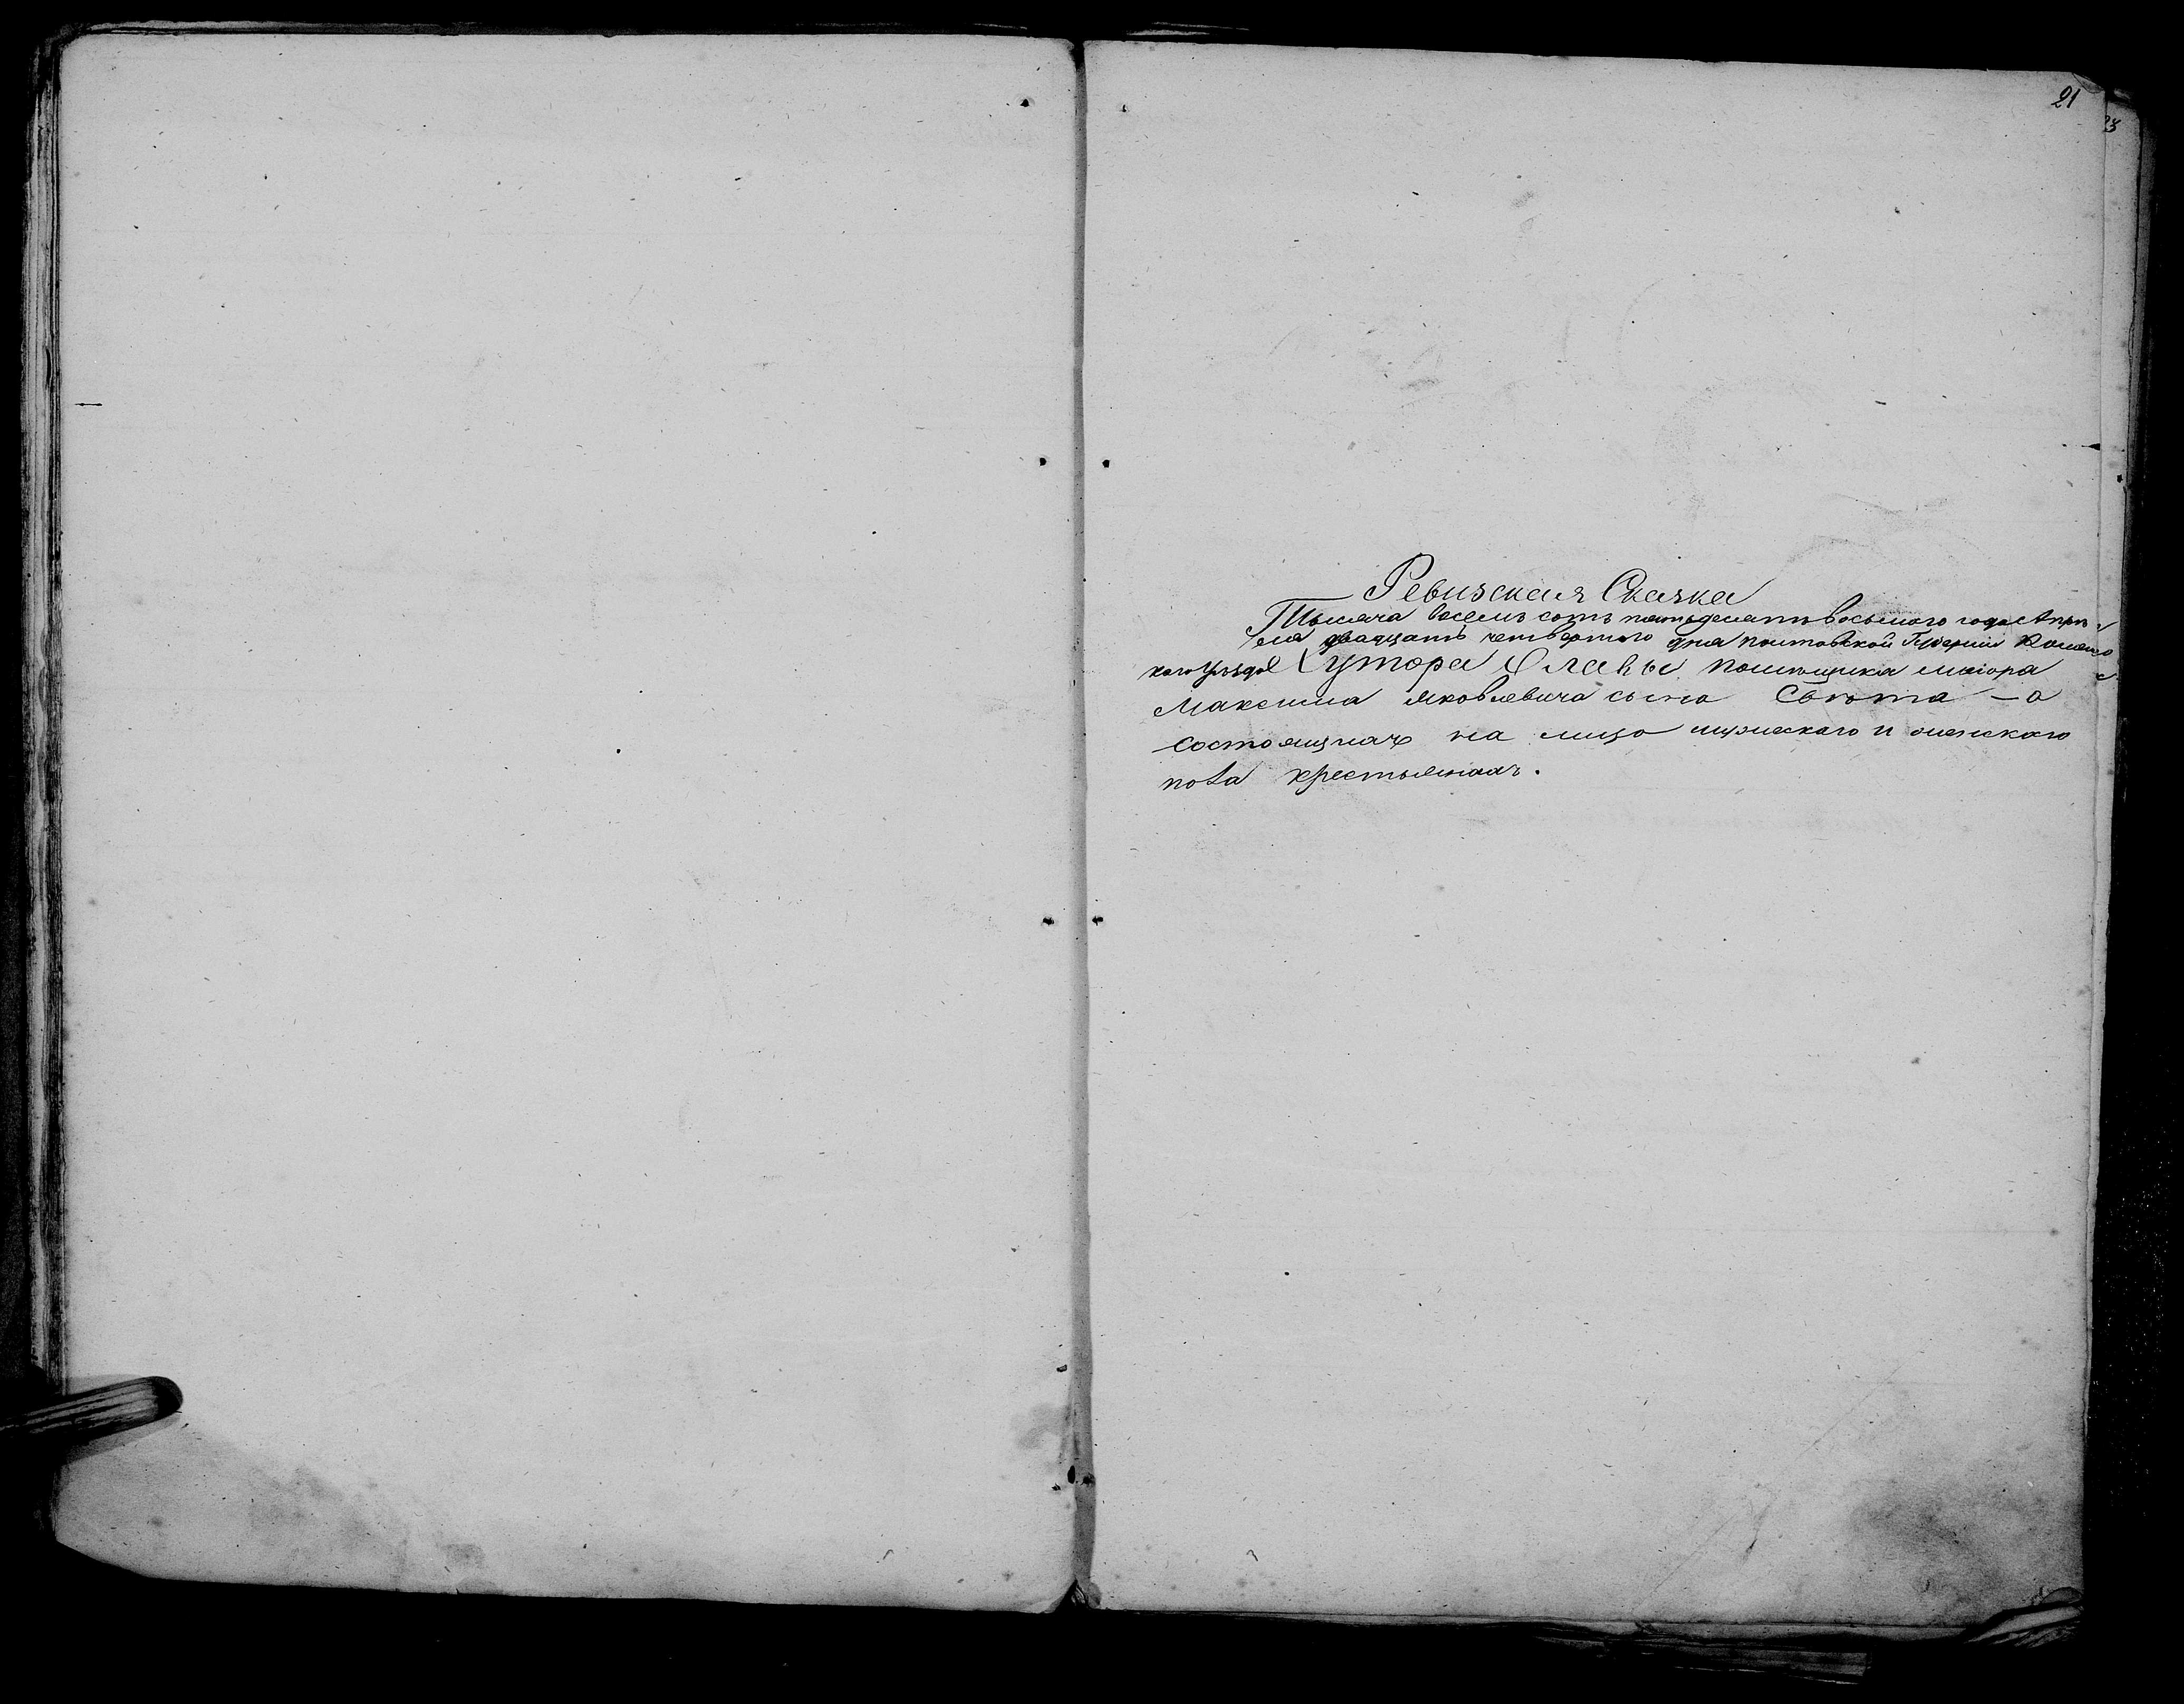 21
Ревизская Сказка
Тысяча восемь сотъ пятьдесятъ восьмого года Апри-
ля двадцать четвертого дня полтавской Губерніи Роменс
кого уѣзда Хутора Славы помѣщика маіора
Максима яковлевича сына Свѣта — о
состоящихъ на лицо мужескаго и женскаго
пола крестьянахъ.